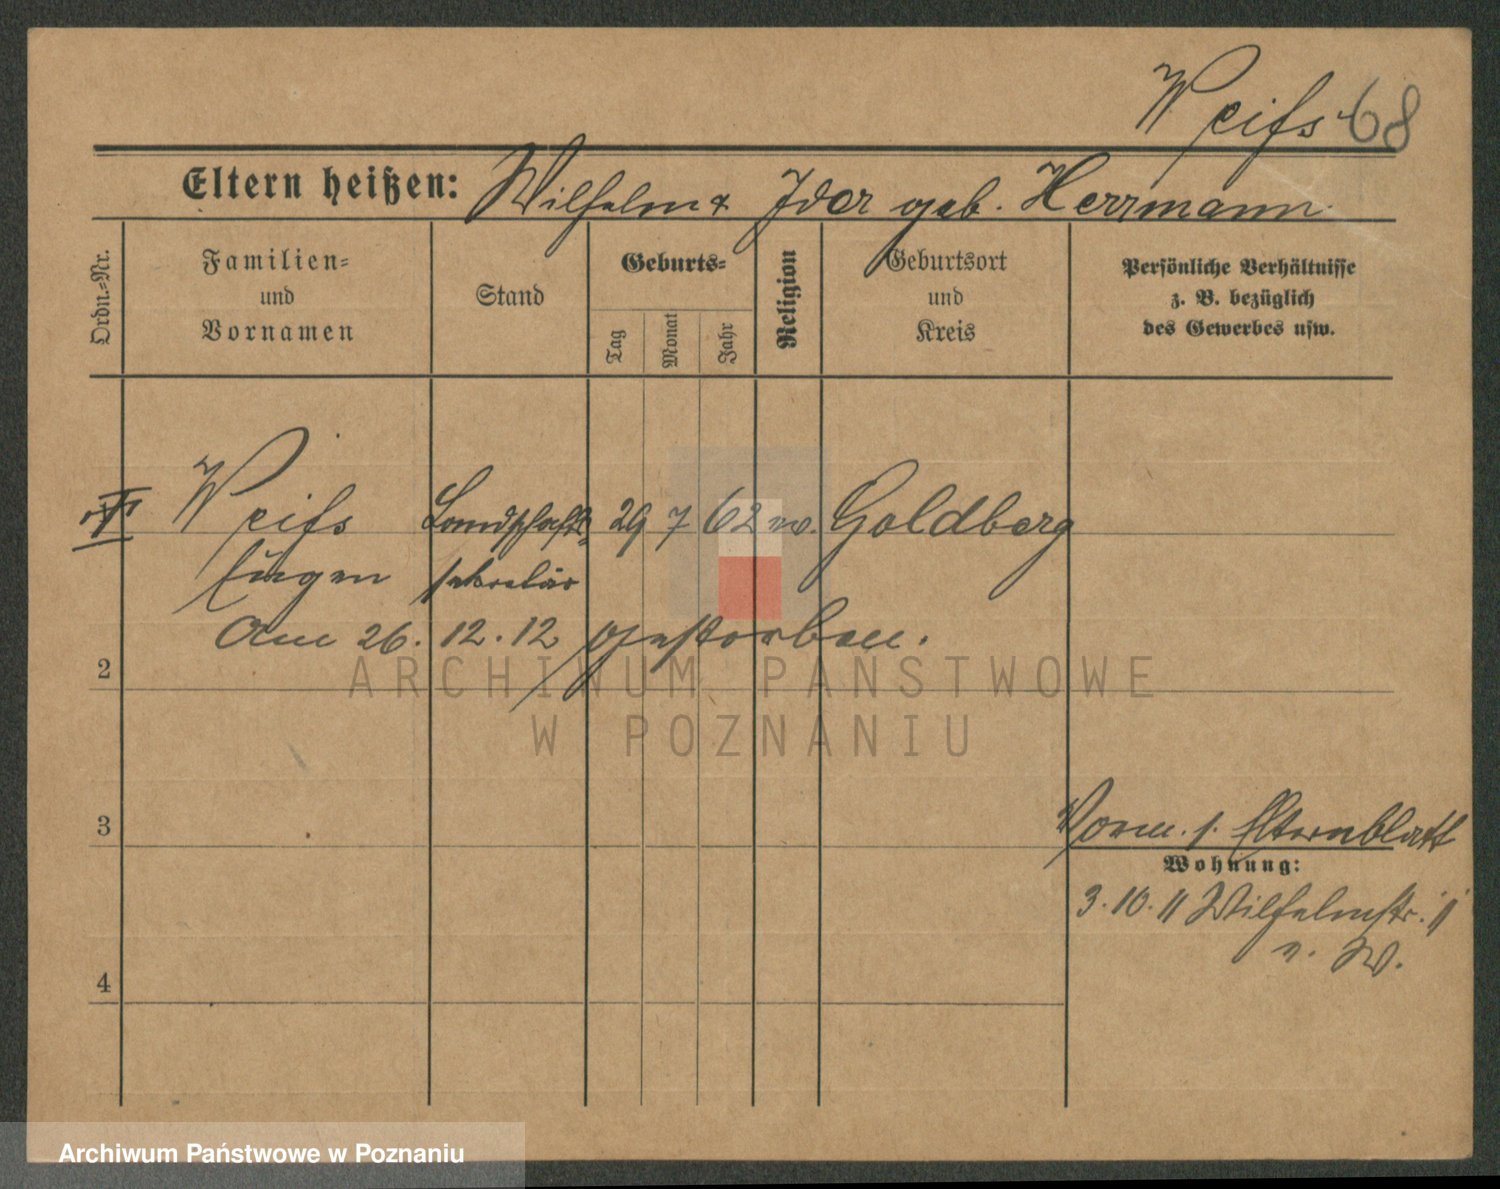 Weiß 68
Eltern heißen: Wilhelm & Ida geb. Herrmann.
Ordn.-Nr.
Familien-
und
Vornamen
Stand
Geburts-
Tag
Monat
Jahr
Religion
Geburtsort
und
Kreis
Persönliche Verhältnisse
z. B. bezüglich
des Gewerbes usw.
Weiß Landschafts- 29 7 62 ev. Goldberg
Eugen sekretär
Am 26. 12. 12 gestorben.
2
3
4
Vorm. s. Elternblatt
Wohnung:
3. 10. 11 Wilhelmstr. 11
v. W.
ARCHIWUM PAŃSTWOWE
W POZNANIU
Archiwum Państwowe w Poznaniu